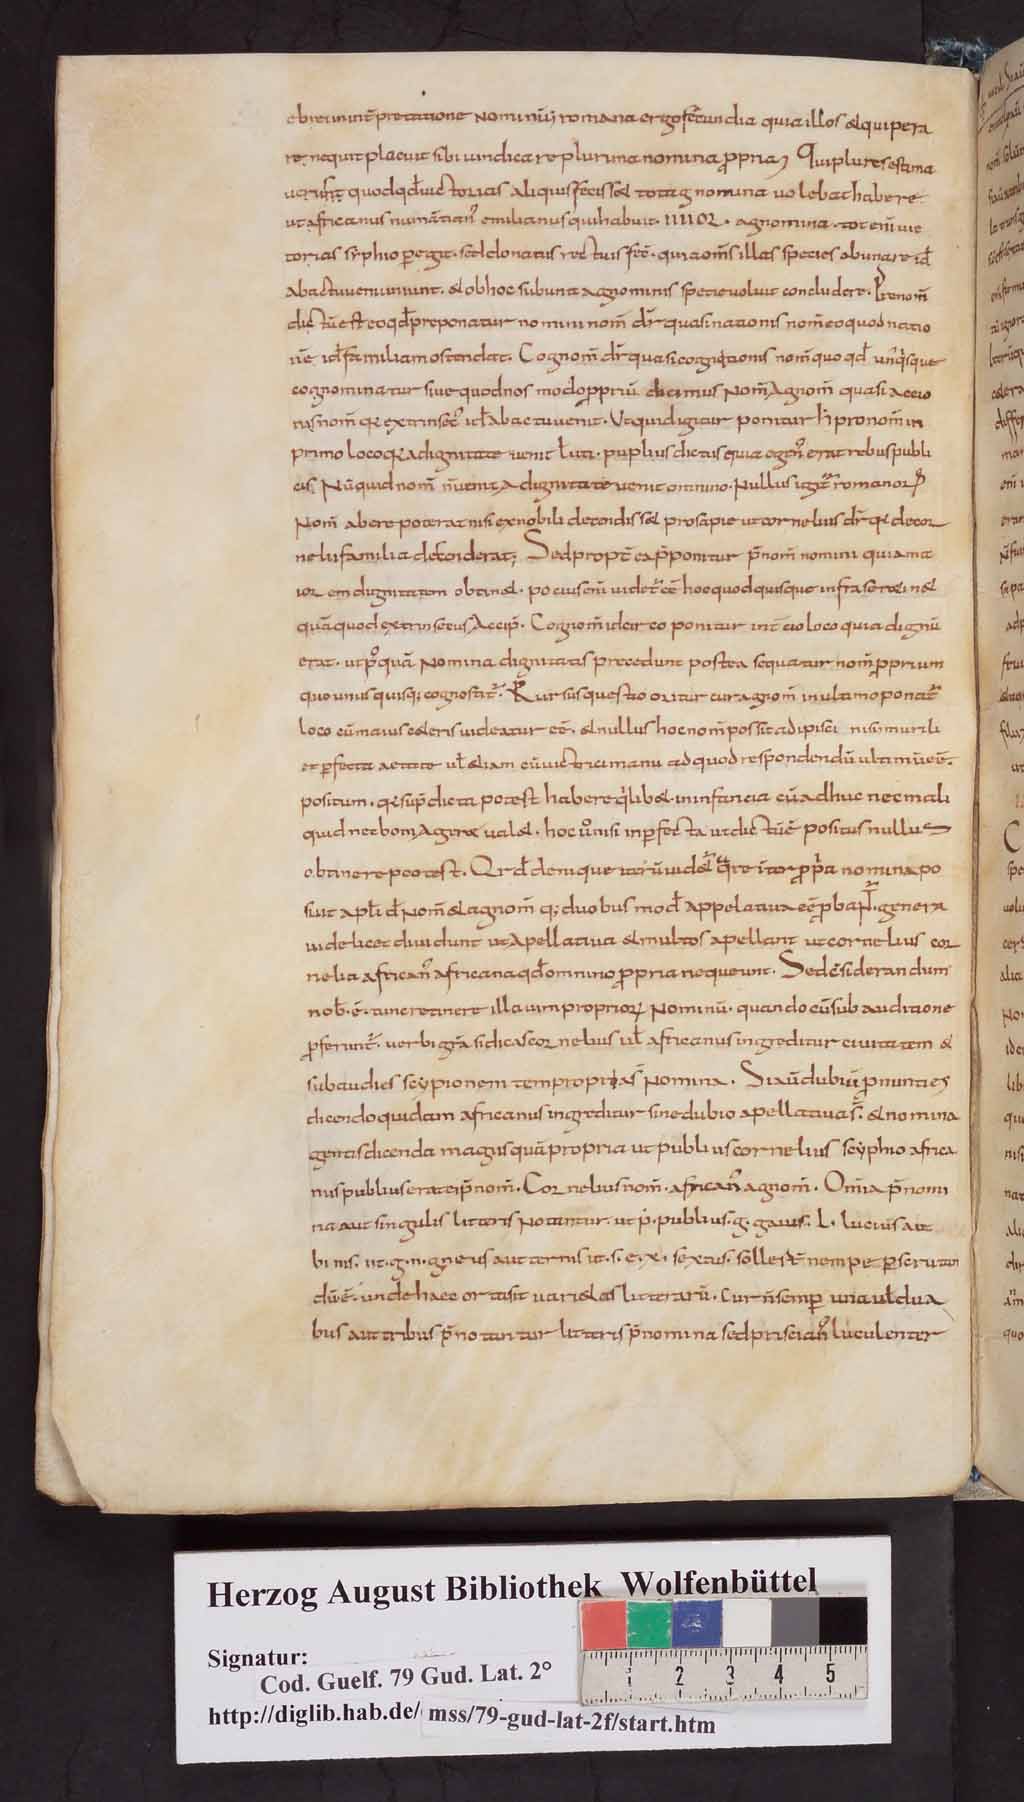 ebreuminťpretatione nominũ; romana ergo fecundia quia illos &quipera
re nequit placuit sibi uindicare plurima nomina ꝓpria; Qui plures estima
uerunt quod qđ uictorias aliquis fecisset tot agnomina uolebat habere
ut africanus numãtian᷒ emilianus qui habuit · IIIIOR · agnomina · tot enĩ uic
torias syphio ꝑegit · sed donatus rectius feč · qui aom̃s illas species abunare id̃
ab actu ueniunt · & ob hoc sub una agnominis specie voluit concludere · Prenom̃
dictũ est eo qđ preponatur nomini nom̃ dr̃ quasi nationis nom̃ eo quod natio
nẽ id familiam ostendat · Cognom̃ dr̃ quasi cognationis nom̃ quo qđ unꝰqisque
cognominatur siue quod nos modo ꝓpriũ dicimus Nom̃ Agnom̃ quasi accio
nis nom̃ qr extrinsec᷒ id ab actu uenit · Vtquid igitur ponitur h pronom̃ in
primo loco qr a dignitate uenit l uti · puplius dictus equia cogn᷒ erat rebus publi
cis; Nũquid nom̃ nuenit a dignitate uenit omnino · Nullus igit romanorꝫ
Nom̃ abere poterat nisi ex nobili decendiss& prosapie ut cornelius dr̃ qr de cor
nelii familia deceiderat; Sed proptẽ ea p̃ponitur p̃nom̃ nomini quia ma
ior em dignitatem obtin& · pociuś enĩ uidet᷒ cẽ hoc quod quisque infra se retin&
quã quod extrinsecus Accip̃ · Cognom̃ idcirco ponitur int̃ cio loco quia dignũ
erat · ut p᷒quã Nomina dignitatis precedunt postea sequatur nom̃ ꝓprium
quo unus quisq; cognoscit᷒ · Rursus questio oritur cur agnom̃ in ultimo ponat᷒
loco cũ maius ceteris uideatur eẽ · & nullus hoc nom̃ possit adipisci nisi murili
et ꝑfecta aetate ul &iam cũ uictrici manu ad quod respondendũ ultimũ eẽ ·
positum · qr sup̃ dicta potest habere qilib& · in infancia cũ adhuc nec mali
quid nec boni Agere ual& · hoc ũ nisi inꝑfecta ut dictũ ẽ positus nullus
obtinere peotest · Qrđ denique iterũ uidet᷒ q̃re inter ꝓpr̃a nomina po
siut apłi đ Nom̃ & agnom̃ q; duobus mod̃ appelatiua eẽ ꝓbant᷒ · genera
uidelicet diuidunt ut Apellatiua & multos apellant ut cornelius cor
nelia africañ africana qđ omnino ꝓpria nequeunt · Sed c̃siderandum
nob̃ · ẽ · tunc retinere illa uim propriorꝫ Nominũ · quando cũ sub auditione
ꝓferunt᷒ · uerbi gr̃a si dicas cornelius ul africanus ingreditur ciuitatem &
sub audies scypionem tem proprias Nomina · Si aũ dubiũ ꝓnunties
dicendo quidam africanus ingreditur sine dubio apellatiua s̃ · & nomina
gentis dicenda magis quã propria ut publius cornelius scyphio africa
nus publius erat ei p̃nom̃ · Cornelius nom̃ · african᷒ agnom̃ · Om̃ia p̃nomi
na aut singulis litteris Notantur · ut · p̃ · publius · g · gaius · L · lucius aut
binis · ut · g · n · gneius aut ternis ut · s · e · x · sextus · sollest̃ nempe ꝑscrutan
dũ ẽ · unde haec orta sit uarietas litterarũ · Cur ñ semꝑ una ul dua
bus aut tribus p̃notantur litteris p̃nomina sed prisciañ luculenter
Herzog August Bibliothek Wolfenbüttel
Signatur:
Cod. Guelf. 79 Gud. Lat. 2°
http://diglib.hab.de/ mss/79-gud-lat-2f/start.htm
1 2 3 4 5